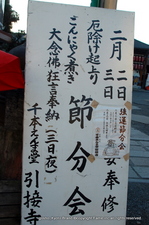 二月 二日
三日
節分会
厄除け起上り
こんにゃく煮き
大念佛狂言奉納(三日夜)
千本ゑんま堂 引接寺
強運節分会
奉修